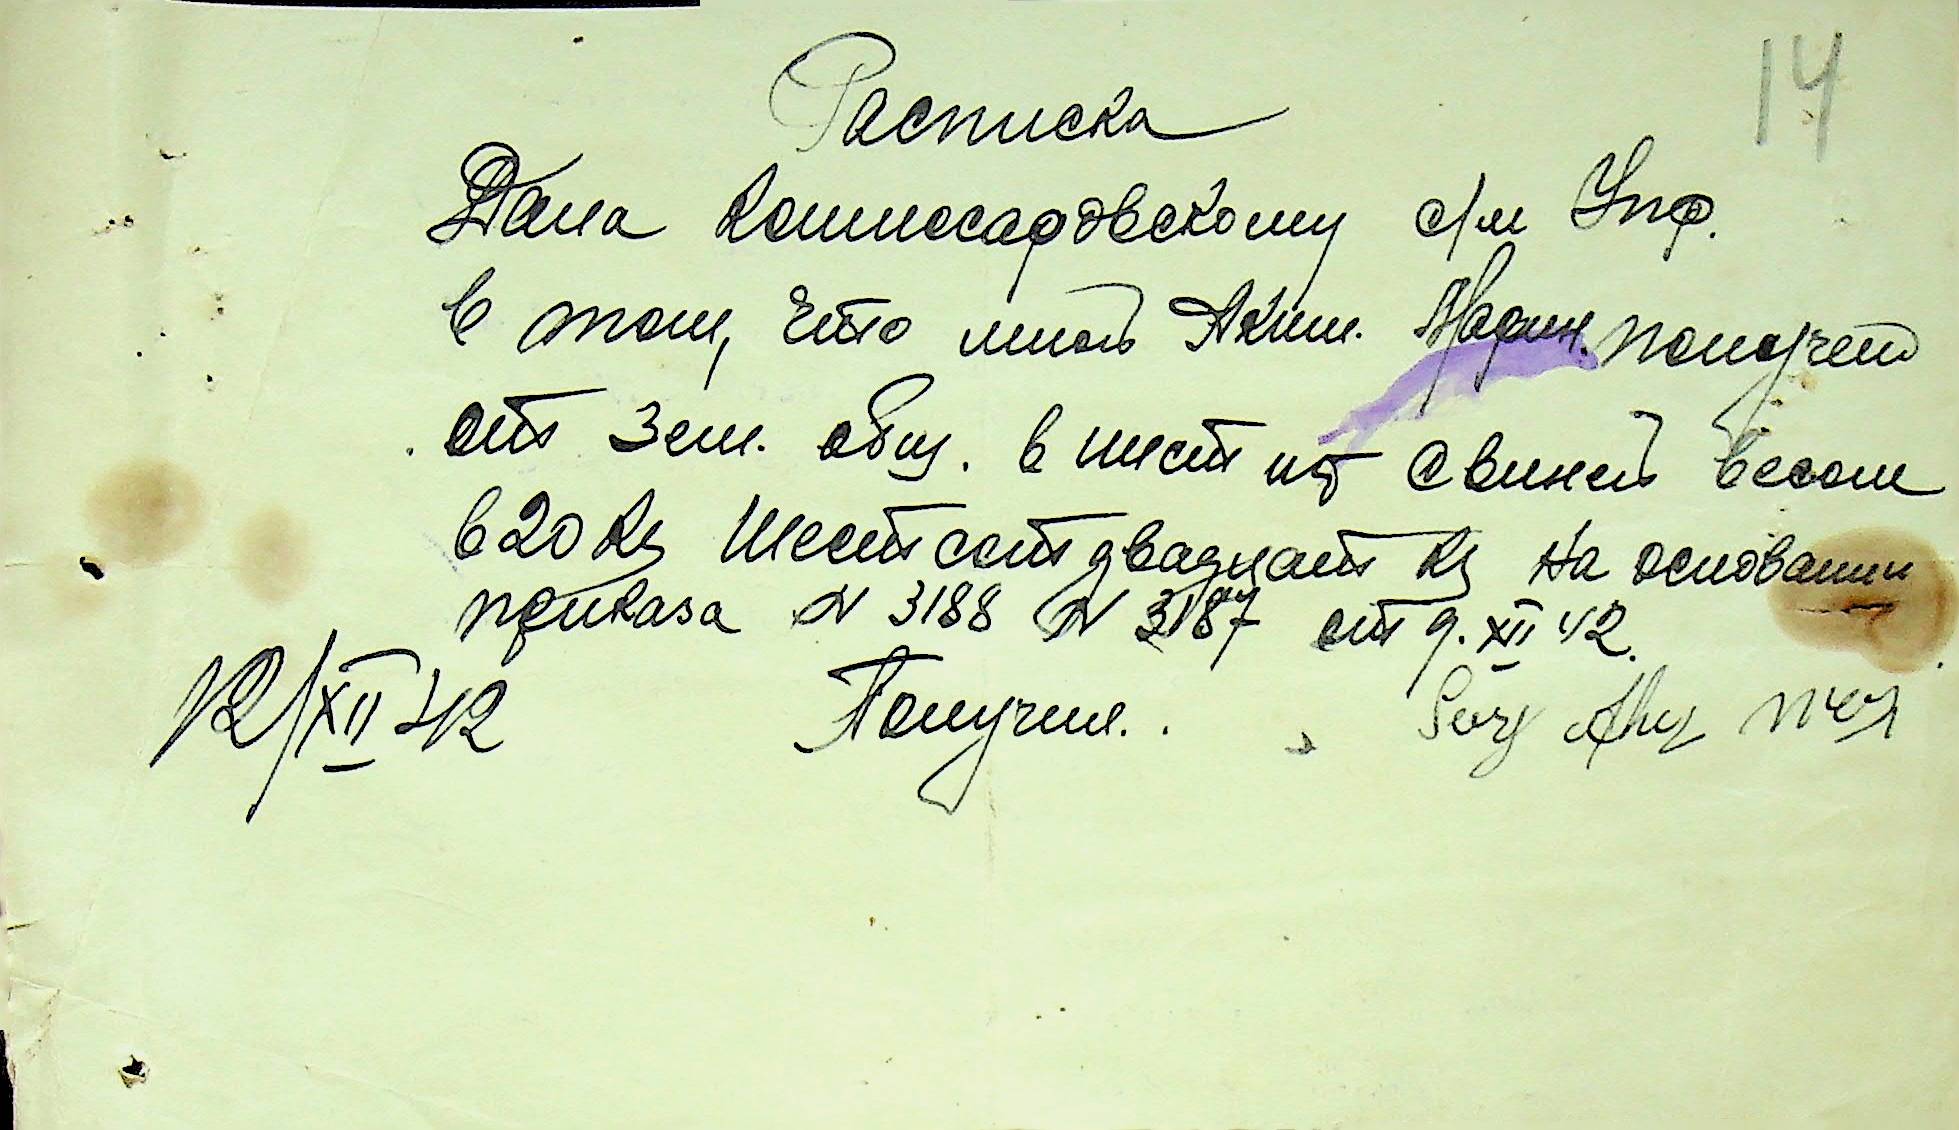 14
Расписка
Дана Комиссаровскому с/м Упр.
в том, что мной Аким. Марин. получено
от Зем. общ. 6 шест шт свиней весом
620 кг Шестсот двадцат кг на основании
приказа N 3188 N 3187 от 9.XII 42.
12/XII 42 Получил.